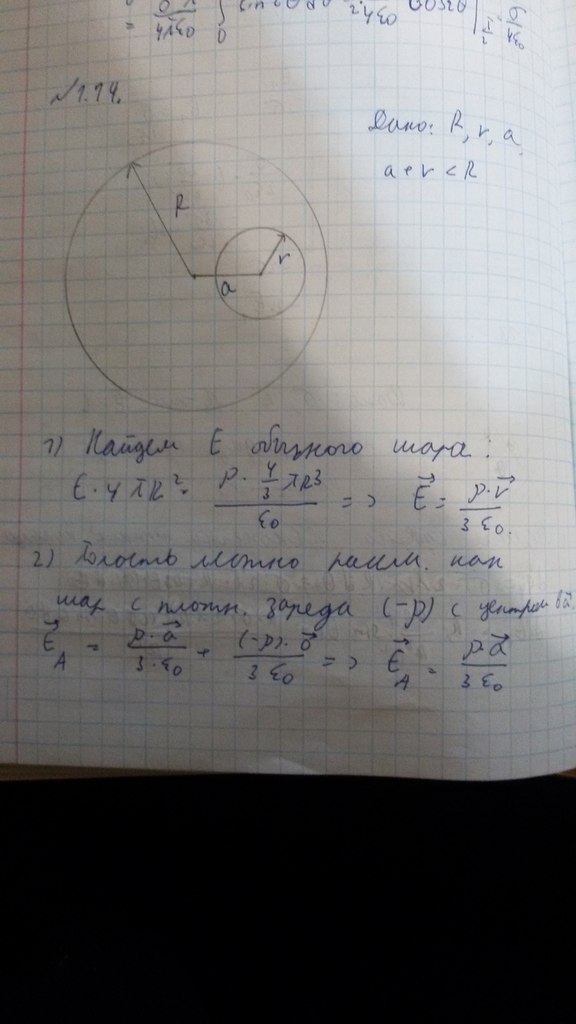 = σπ/4πε₀ ∫₀
№1.14.
Дано: R, r, a,
a + r < R
R
r
a
1) Найдем E обычного шара:
E · 4πR² = ρ · 4/3 πR³ / ε₀ => E⃗ = ρ · r⃗ / 3ε₀.
2) Полость можно рассм. как
шар с плотн. заряда (-ρ) с центром в a⃗.
E⃗_A = ρ · a⃗ / 3 · ε₀ + (-ρ) · 0⃗ / 3ε₀ => E⃗_A = ρ · a⃗ / 3ε₀